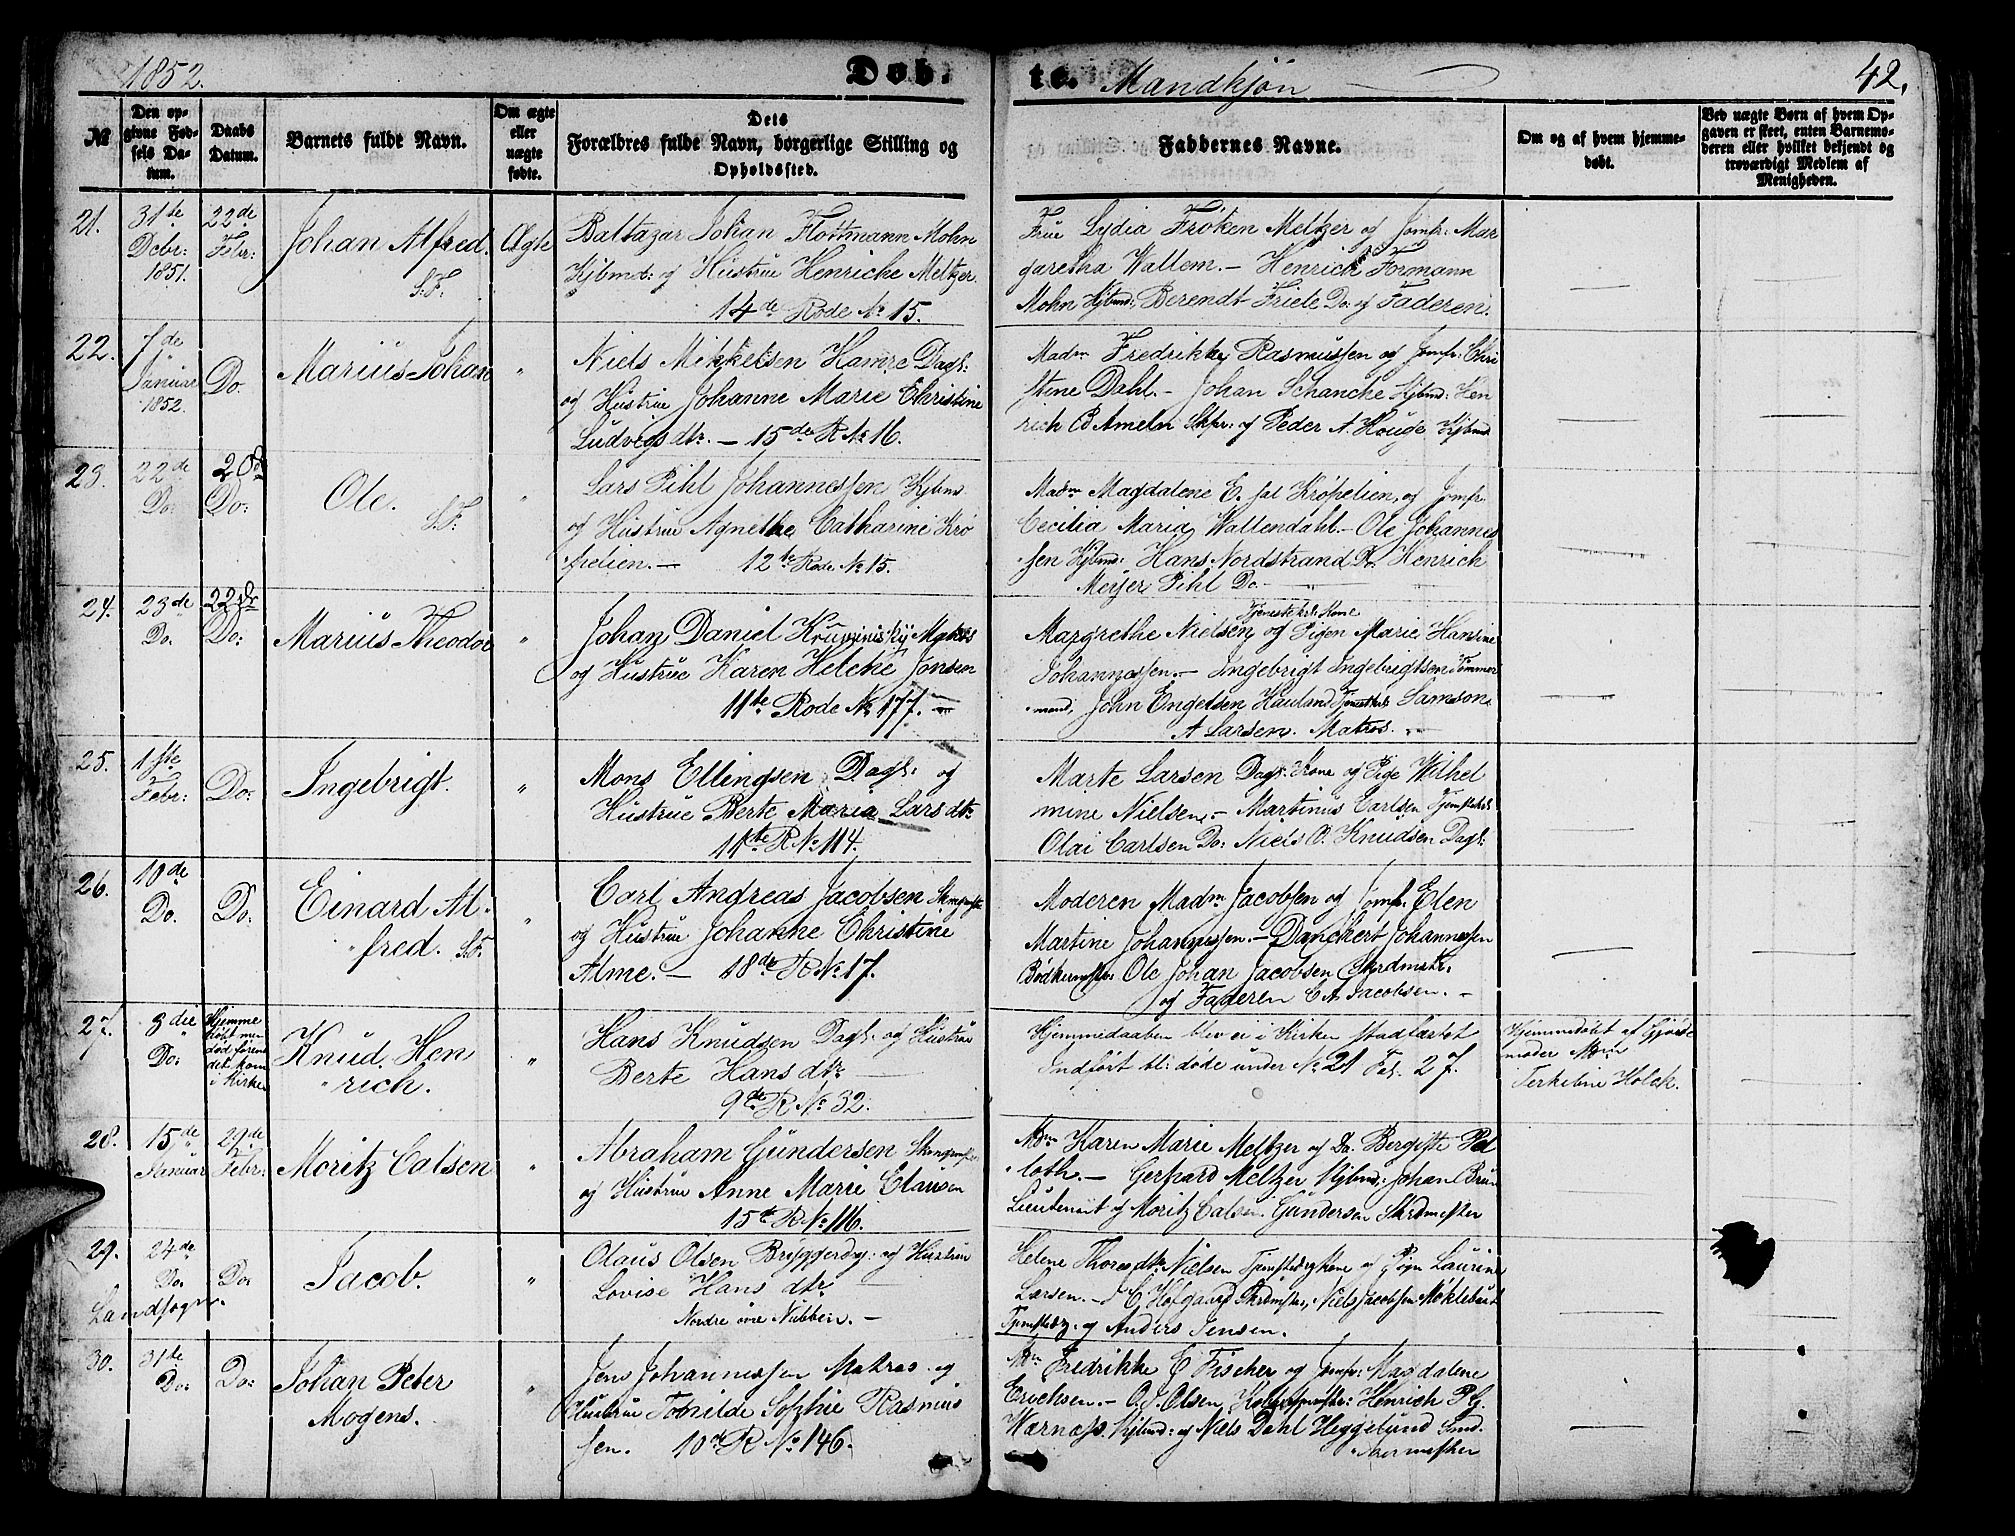 1852.
Døb-
te.
Mandkjøn
42.
№
Den op-
givne Fød-
sels Da-
tum.
Daabs
Datum.
Barnets fulde Navn.
Om ægte
eller
uægte
fødte.
Dets
Forældres fulde Navn, borgerlige Stilling og
Opholdssted.
Faddernes Navne.
Om og af hvem hjemme-
døbt.
Ved uægte Børn af hvem Op-
gaven er skeet, enten Barnemo-
deren eller hvilket bekjendt og
troværdigt Medlem af
Menigheden.
21.
31te
Debr:
1851.
22de
Febr:
Johan Alfred.
S.F.
Ægte
Baltazar Johan Flottmann Mohn
Kjbmd: og Hustrue Henricke Meltzer
14de Rode № 15.
Frue Lydia Frøken Meltzer og Jomfr: Mar
garetha Wallem. – Henrich Formann
Mohn Kjbmd: Berendt Friele Do. og Faderen.
22.
7de
Januar
1852.
Do.
Marius Johan
"
Niels Mikkelsen Hamre Dagl:
og Hustrue Johanne Marie Christine
Ludvigsdtr. – 15de R № 16.
Madm Fredrikke Rasmussen og Jomfr: Chri
stine Dahl. – Johan Schancke Kjbmd: Hen
rich B Ameln Skpr: og Peder A. Houge Kjbmd
23.
22de
Do.
20de
Do:
Ole.
S.F.
"
Lars Pihl Johannessen Kjbmd
og Hustrue Agnethe Catharine Krø
pelien. – 12te Rode № 15.
Madm Magdalene E. sal Krøpelien, og Jomfr.
Cecilia Maria Wallendahl – Ole Johannes
sen Kjbmd: Hans Nordstrand Do. Henrich
Meyer Pihl Do. –
24.
23de
Do.
22de
Do:
Marius Theodor
"
Johan Daniel Matros
og Hustrue Karen Helche Jonsen
11te Rode № 177. –
Tjenestekrl: Kone
Margrethe Nielsen og Pigen Marie Hansine
Johannessen. – Ingebrigt Ingebrigtsen Tømmer
mand, John Engelsen Hauland Samson
A Larsen. Matros. –
25.
1ste
Febr:
Do:
Ingebrigt.
"
Mons Ellingsen Dagl: og
Hustrue Berte Maria Larsdtr
11te R № 114.
Marte Larsen Dagl: Kone og Pige Wilhel
mine Nielsen, – Martinus Carlsen
Olai Carlsen Do: Niels O. Knudsen Dagl:
26.
10de
Do.
Do:
Einard Al-
fred. S.F.
"
Carl Andreas Jacobsen
og Hustrue Johanne Christine
Alme. – 18de R № 17.
Moderen Madm Jacobsen og Jomfr. Elen
Martine Johannessen. – Danckert Johannessen
Bødkermstr: Ole Johan Jacobsen Skrdmstr.
og Faderen C A Jacobsen. –
27.
3die
Do:
Hjemme
døbt men
død føren
det kom
i Kirke
Knud Hen
rich.
"
Hans Knudsen Dagl: og Hustrue
Berte Hansdtr.
9de R № 32.
Hjemmedaaben blev ei i Kirken stadfæstet
Indført bl: døde under № 21 Fol. 27.
Hjemmedøbt af Gjorde
moder Mdm
Terkeline Holck.
28.
15de
Januar
29de
Febr:
Moritz Calsen
"
Abraham Gundersen
og Hustrue Anne Marie Clausen
15de R № 116.
Mdm Karen Marie Meltzer og Do. Bergitte Pal
loth. – Gerhard Meltzer Kjbmd: Johan Brun
Lieutenant og Moritz Calsen Gundersen Skrdmester
29.
24de
Do.
Landsogn.
Do:
Jacob.
"
Olaus Olsen Bryggerdr: og Hustrue
Lovise Hansdtr
Nordre øvre Nubben. –
Helene Thoresdtr Nielsen og Pigen Laurine
Larsen. – J C Hofgaard Skrdmstr, Niels Jacobsen Møklebust
og Anders Jensen.
30.
31te
Do:
Do:
Johan Peter
Mogens.
"
Jens Johannessen Matros og
Hustrue Tomilde Sophie Rasmus
sen. 10de R № 146.
Mdm Fredrikke E Fischer og Jomfr: Magdalene
Erichsen. – O. J. Olsen, Henrich P G.
Warnøss. Kjbmd: og Niels Dahl Heggelund Smd.